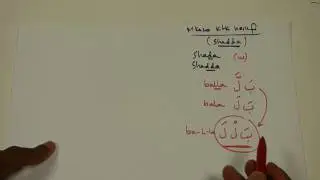 Mkazo ktk harufi
(Shadda)
Shada (ω)
Shadda
balla بَ لَّ
bala بَ لَ
ba-l-la بَ لْ لَ